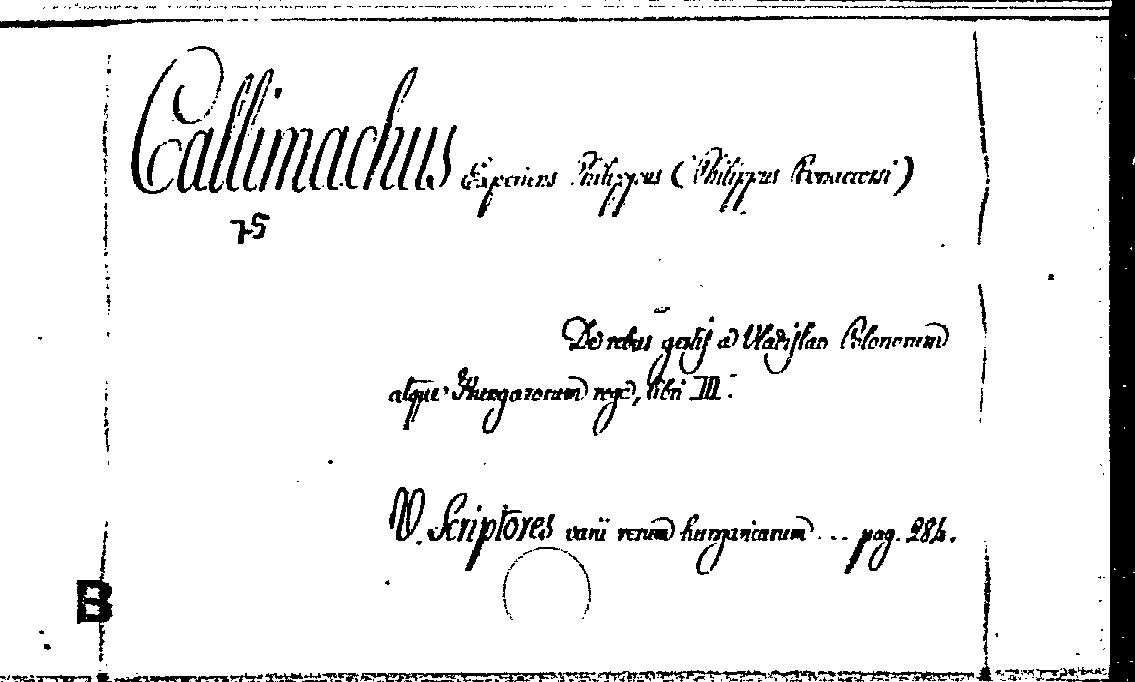 Callimachus Experiens Philippus (Philippus Bonaccorsi)
75
De rebus gestis a Vladislao Polonorum
atque Hungarorum rege, libri III.
V. Scriptores varii rerum hungaricarum ... pag. 284.
B